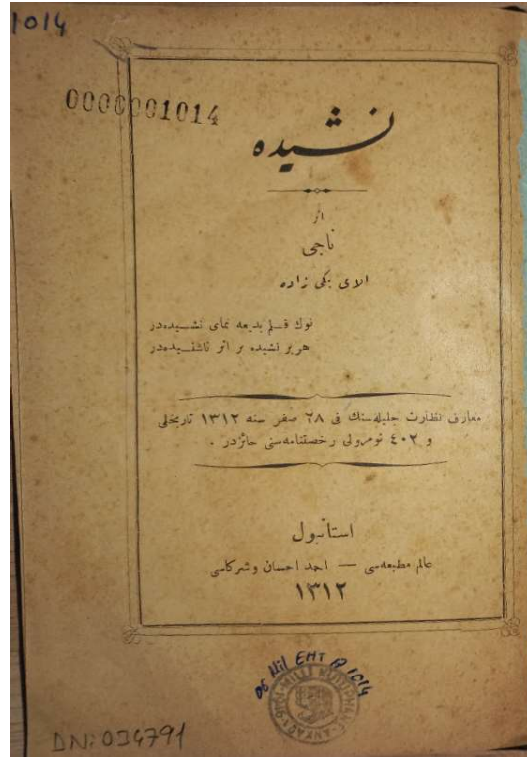 1014
0000001014
نشیده
اثر
ناجی
الای بگی زاده
نوك قلم بدیعه نمای نشیده‌در
هر بر نشیده بر اثر ناشنیده‌در
معارف نظارت جلیله‌سنك فی ٢٨ صفر سنه ١٣١٢ تاریخلی
و ٤٠٢ نومرولی رخصتنامه‌سنی حائزدر .
استانبول
عالم مطبعه‌سی — احمد احسان وشركاسی
١٣١٢
06 Mil EHT A 1014
DN: 034791